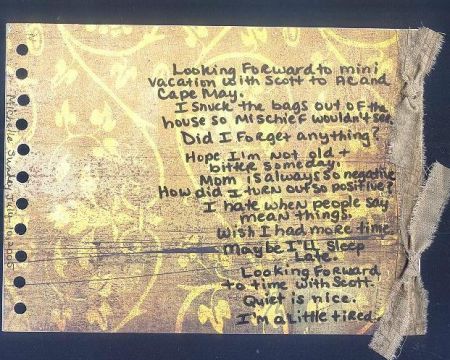 Looking Forward to mini
vacation with Scott to AC and
Cape May.
I snuck the bags out of the
house so Mischief wouldn't see.
Did I Forget anything?
Hope I'm not old +
bitter someday.
Mom is always so negative
How did I turn out so positive?
I hate when people say
mean things.
Wish I had more time.
Maybe I'll Sleep
Late.
Looking Forward
to time with Scott.
Quiet is nice.
I'm a little tired.
Michelle Sunday